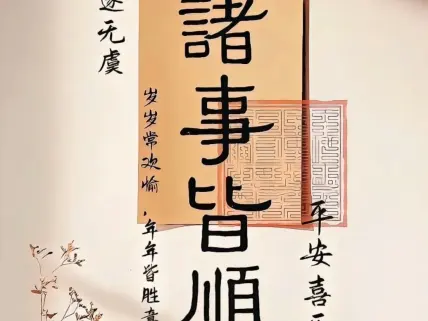 諸事皆順
遂无虞
岁岁常欢愉，年年皆胜意
平安喜